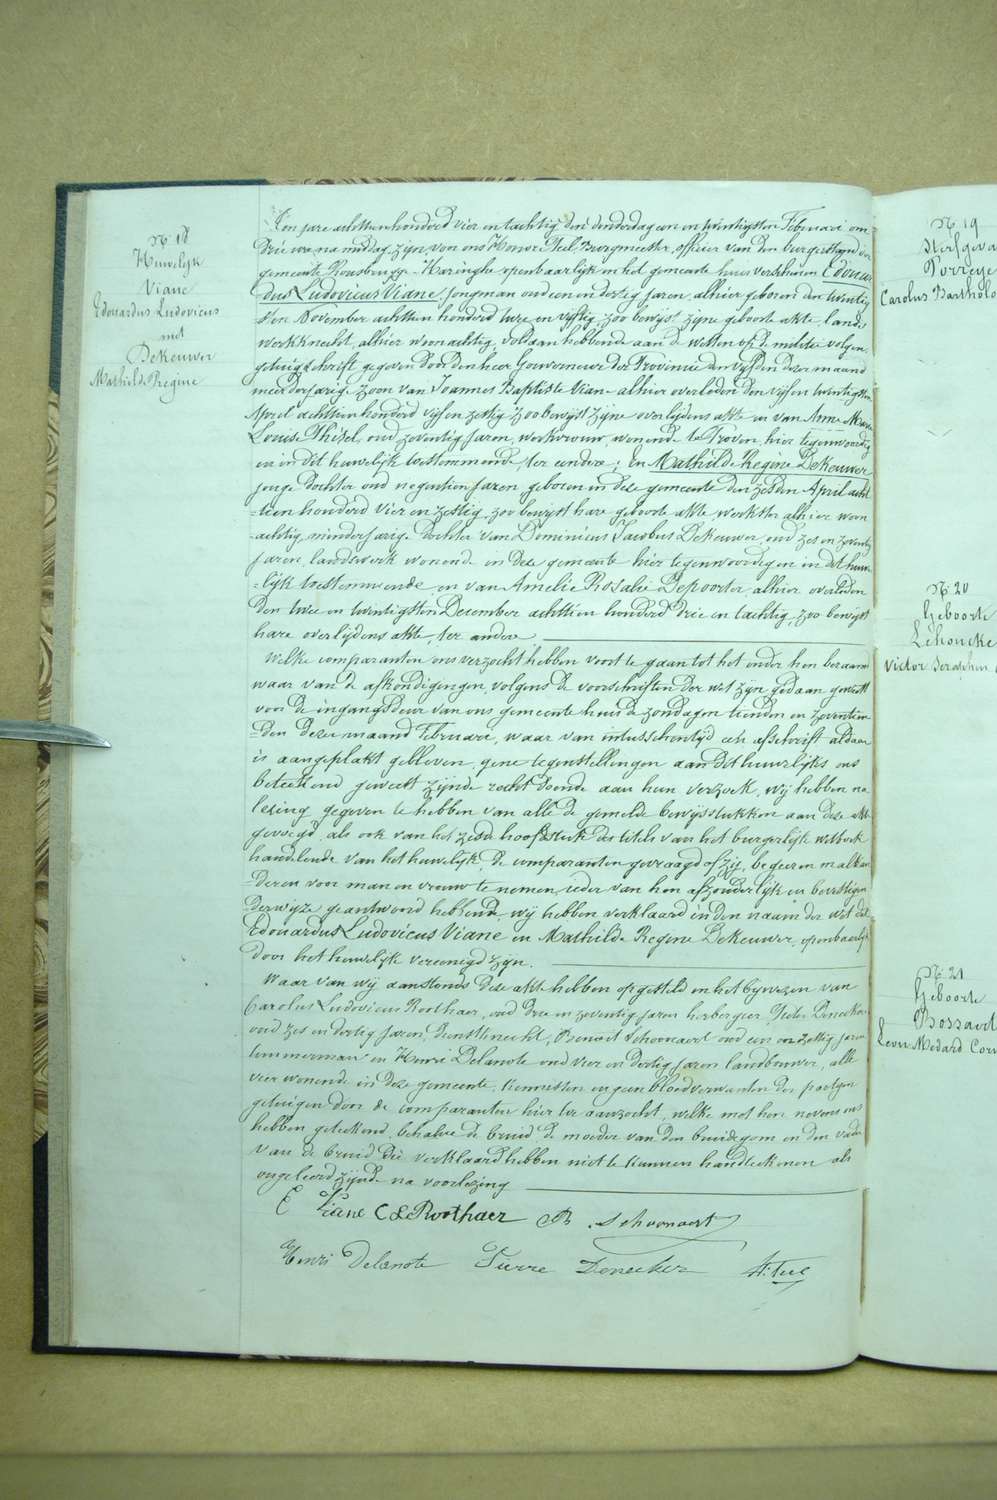 N. 18
Huwelijk
Viane
Edouardus Ludovicus
met
DeKeuwer
Mathilde Regine
Ten jare achttienhonderd vier en tachtig den donderdag een en twintigsten Februari om
drie ure na middag zijn voor ons Honoré Teel, burgmeester, officier van den burgerstand der
gemeente Rousbrugge-Haringhe openbaarlijk in het gemeente huis verscheenen Edouar
dus Ludovicus Viane jongman oud een en dertig jaren alhier geboren den twintig
sten November achttien honderd twee en vijftig, zoo bewijst zijne geboorte akte, lands
werkknecht, alhier woonachtig, voldaan hebbende aan de wetten op de militie volgens
getuigschrift gegeven door den heer Gouverneur der Provincie den vijfden dezer maand
meerderjarige zoon van Joannes Baptiste Viane alhier overleden den vijf en twintigsten
April achttienhonderd vijf en zestig zoo bewijst zijne overlijdens akte en van Anne Marie
Louise Thisel, oud zeventig jaren, werkvrouw, wonende te Proven, hier tegenwoordig
en in dit huwelijk toestemmende, ter eendre; En Mathilde Regine DeKeuwer
jonge dochter oud negentien jaren geboren in deze gemeente den zesden April acht
-tien honderd vier en zestig, zoo bewijst hare geboorte akte werkster alhier woon
-achtig, minderjarige dochter van Dominicus Jacobus DeKeuwer, oud zes en zeventig
jaren, landswerk wonende in deze gemeente hier tegenwoordig en in dit huwe
-lijk toestemmende, en van Amelie Rosalie Depoorter alhier overleden
den twee en twintigsten December achttien honderd drie en tachtig, zoo bewijst
hare overlijdens akte, ter andere
Welke comparanten ons verzocht hebben voort te gaan tot het onder hen beraamd
waar van de afkondigingen, volgens de voorschriften der wet zijn gedaan geweest
voor de ingangsdeur van ons gemeente huis de zondagen tienden en zeventien
-den dezer maand Februari, waar van intusschentijd een afschrift aldaar
is aangeplakt gebleven, gene tegenstellingen aan dit huwelijks ons
beteekend geweest zijnde recht doende aan hun verzoek, wij hebben na
lezing gegeven te hebben van alle de gemelde bewijsstukken aan deze akte
gevoegd als ook van het zesde hoofdstuk des titels van het burgerlijk wetboek
handelende van het huwelijk, de comparanten gevraagd of zij begeeren malkan
-deren voor man en vrouw te nemen, ieder van hen afzonderlijk en bevestigen
-derwijze geantwoord hebbende, wij hebben verklaard in den naam der wet dat
Edouardus Ludovicus Viane en Mathilde Regine DeKeuwer, openbaarlijk
door het huwelijk vereenigd zijn.
Waar van wij aanstonds deze akte hebben opgesteld in het bijwezen van
Carolus Ludovicus Roothaer, oud drie en zeventig jaren herbergier, Pieter Denecker
oud zes en dertig jaren, dienstknecht, Benoit Schoonaert oud een en zestig jaren
timmerman en Henri Delanote oud vier en dertig jaren landbouwer, alle
vier wonende in deze gemeente, kennissen en geen bloedverwanten der partijen
getuigen door de comparanten hier toe aanzocht, welke met hen nevens ons
hebben geteekend, behalve de bruid, de moeder van den bruidegom en den vader
van de bruid die verklaard hebben niet te kunnen handteekenen als
ongeleerd zijnde na voorlezing
E Viane C L Roothaer B. Schoonaert
Henri Delanote Pierre Denecker H. Teel
N. 19
Sterfgeval
Porreye
Carolus Bartholo
N. 20
Geboorte
Lehoucke
Victor Seraphin
N. 21
Geboorte
Bossaert
Leon Medard Corn